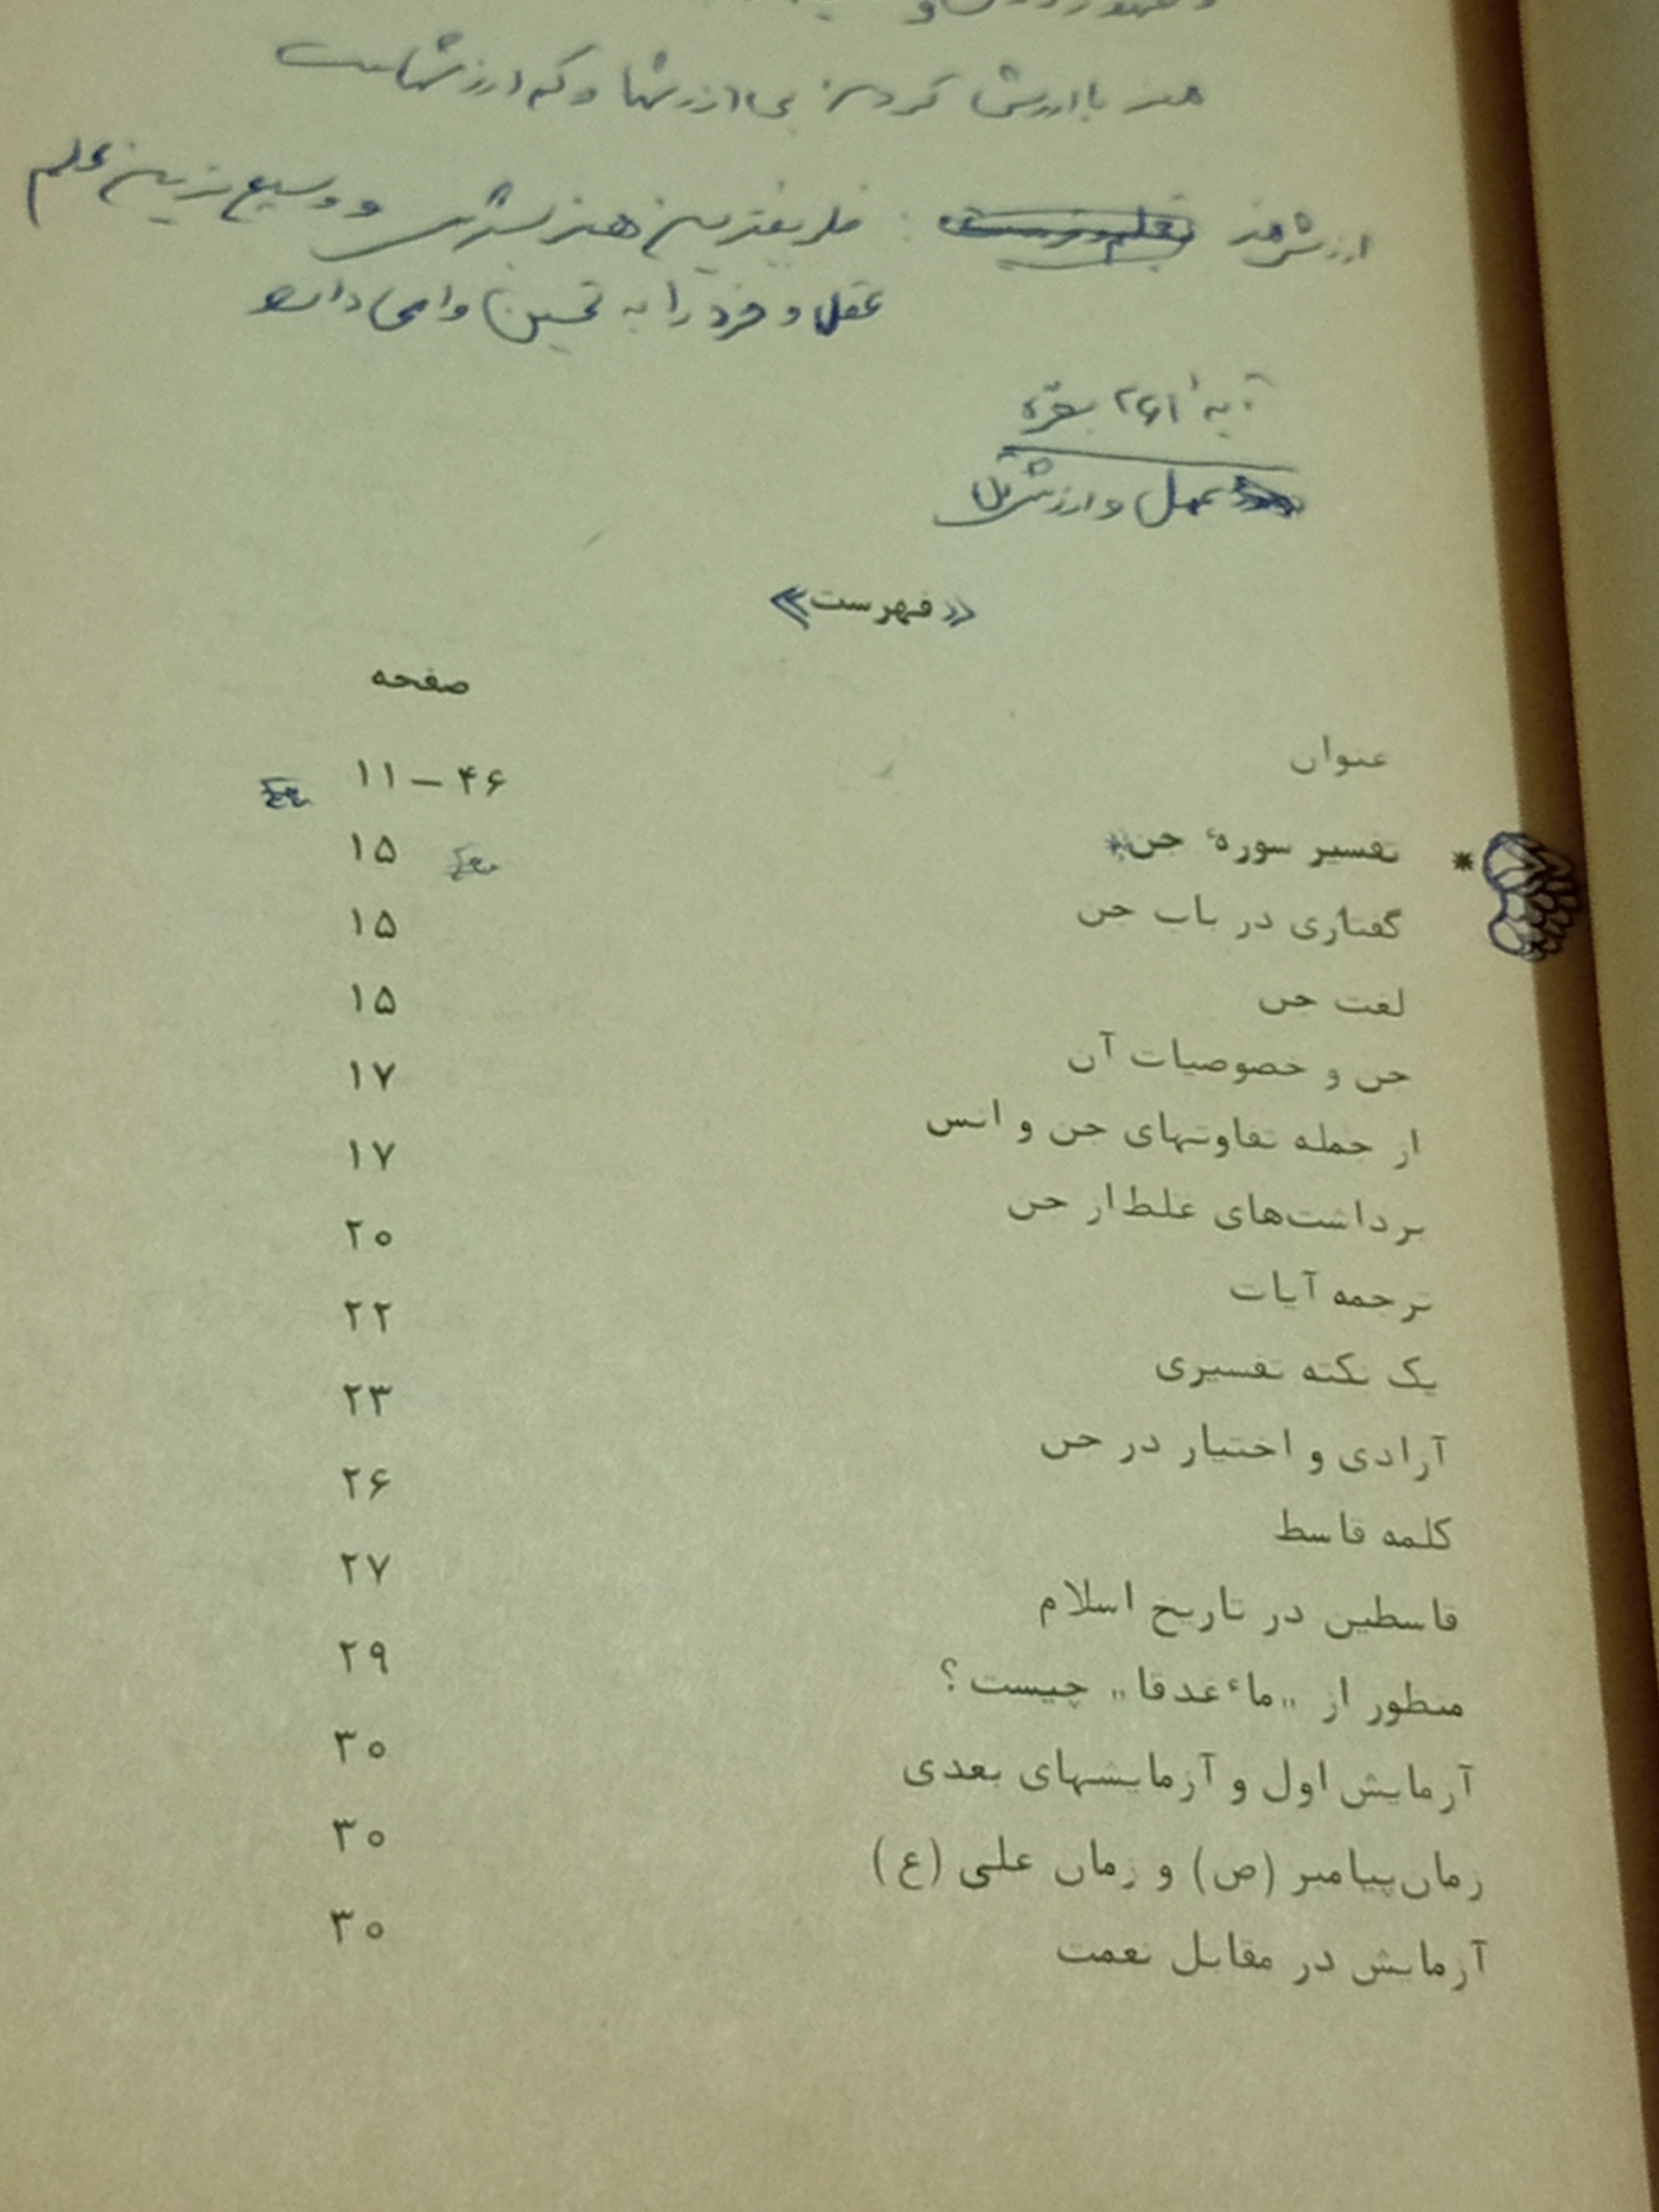 هنر با ارزش کردن بی ارزشها و که ارزشهاست
ارزش هنر : ظریفترین هنر بشری و وسیع ترین علم
عقل و خرد را به تحسین وامی دارد
آیهٔ ۲۶۱ بقره
عمل و ارزش آن
«فهرست»
صفحه
عنوان
* تفسیر سورهٔ جن* ۱۱ – ۴۶
گفتاری در باب جن ۱۵
لغت جن ۱۵
جن و خصوصیات آن ۱۵
از جمله تفاوتهای جن و انس ۱۷
برداشت‌های غلط از جن ۱۷
ترجمه آیات ۲۰
یک نکته تفسیری ۲۲
آزادی و اختیار در جن ۲۳
کلمه قاسط ۲۶
قاسطین در تاریخ اسلام ۲۷
منظور از "ماءٔ غدقا" چیست؟ ۲۹
آزمایش اول و آزمایشهای بعدی ۳۰
زمان پیامبر (ص) و زمان علی (ع) ۳۰
آزمایش در مقابل نعمت ۳۰